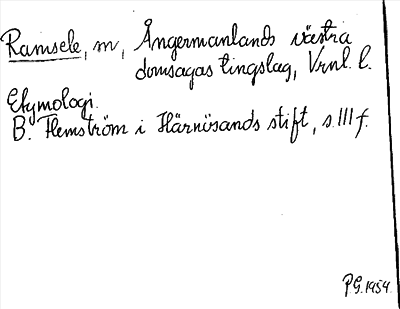 Ramsele, m, Ångermanlands västra
domsagas tingslag, Vrnl. l.
Etymologi.
B. Flemström i Härnösands stift, s. 111 f.
P.G. 1954